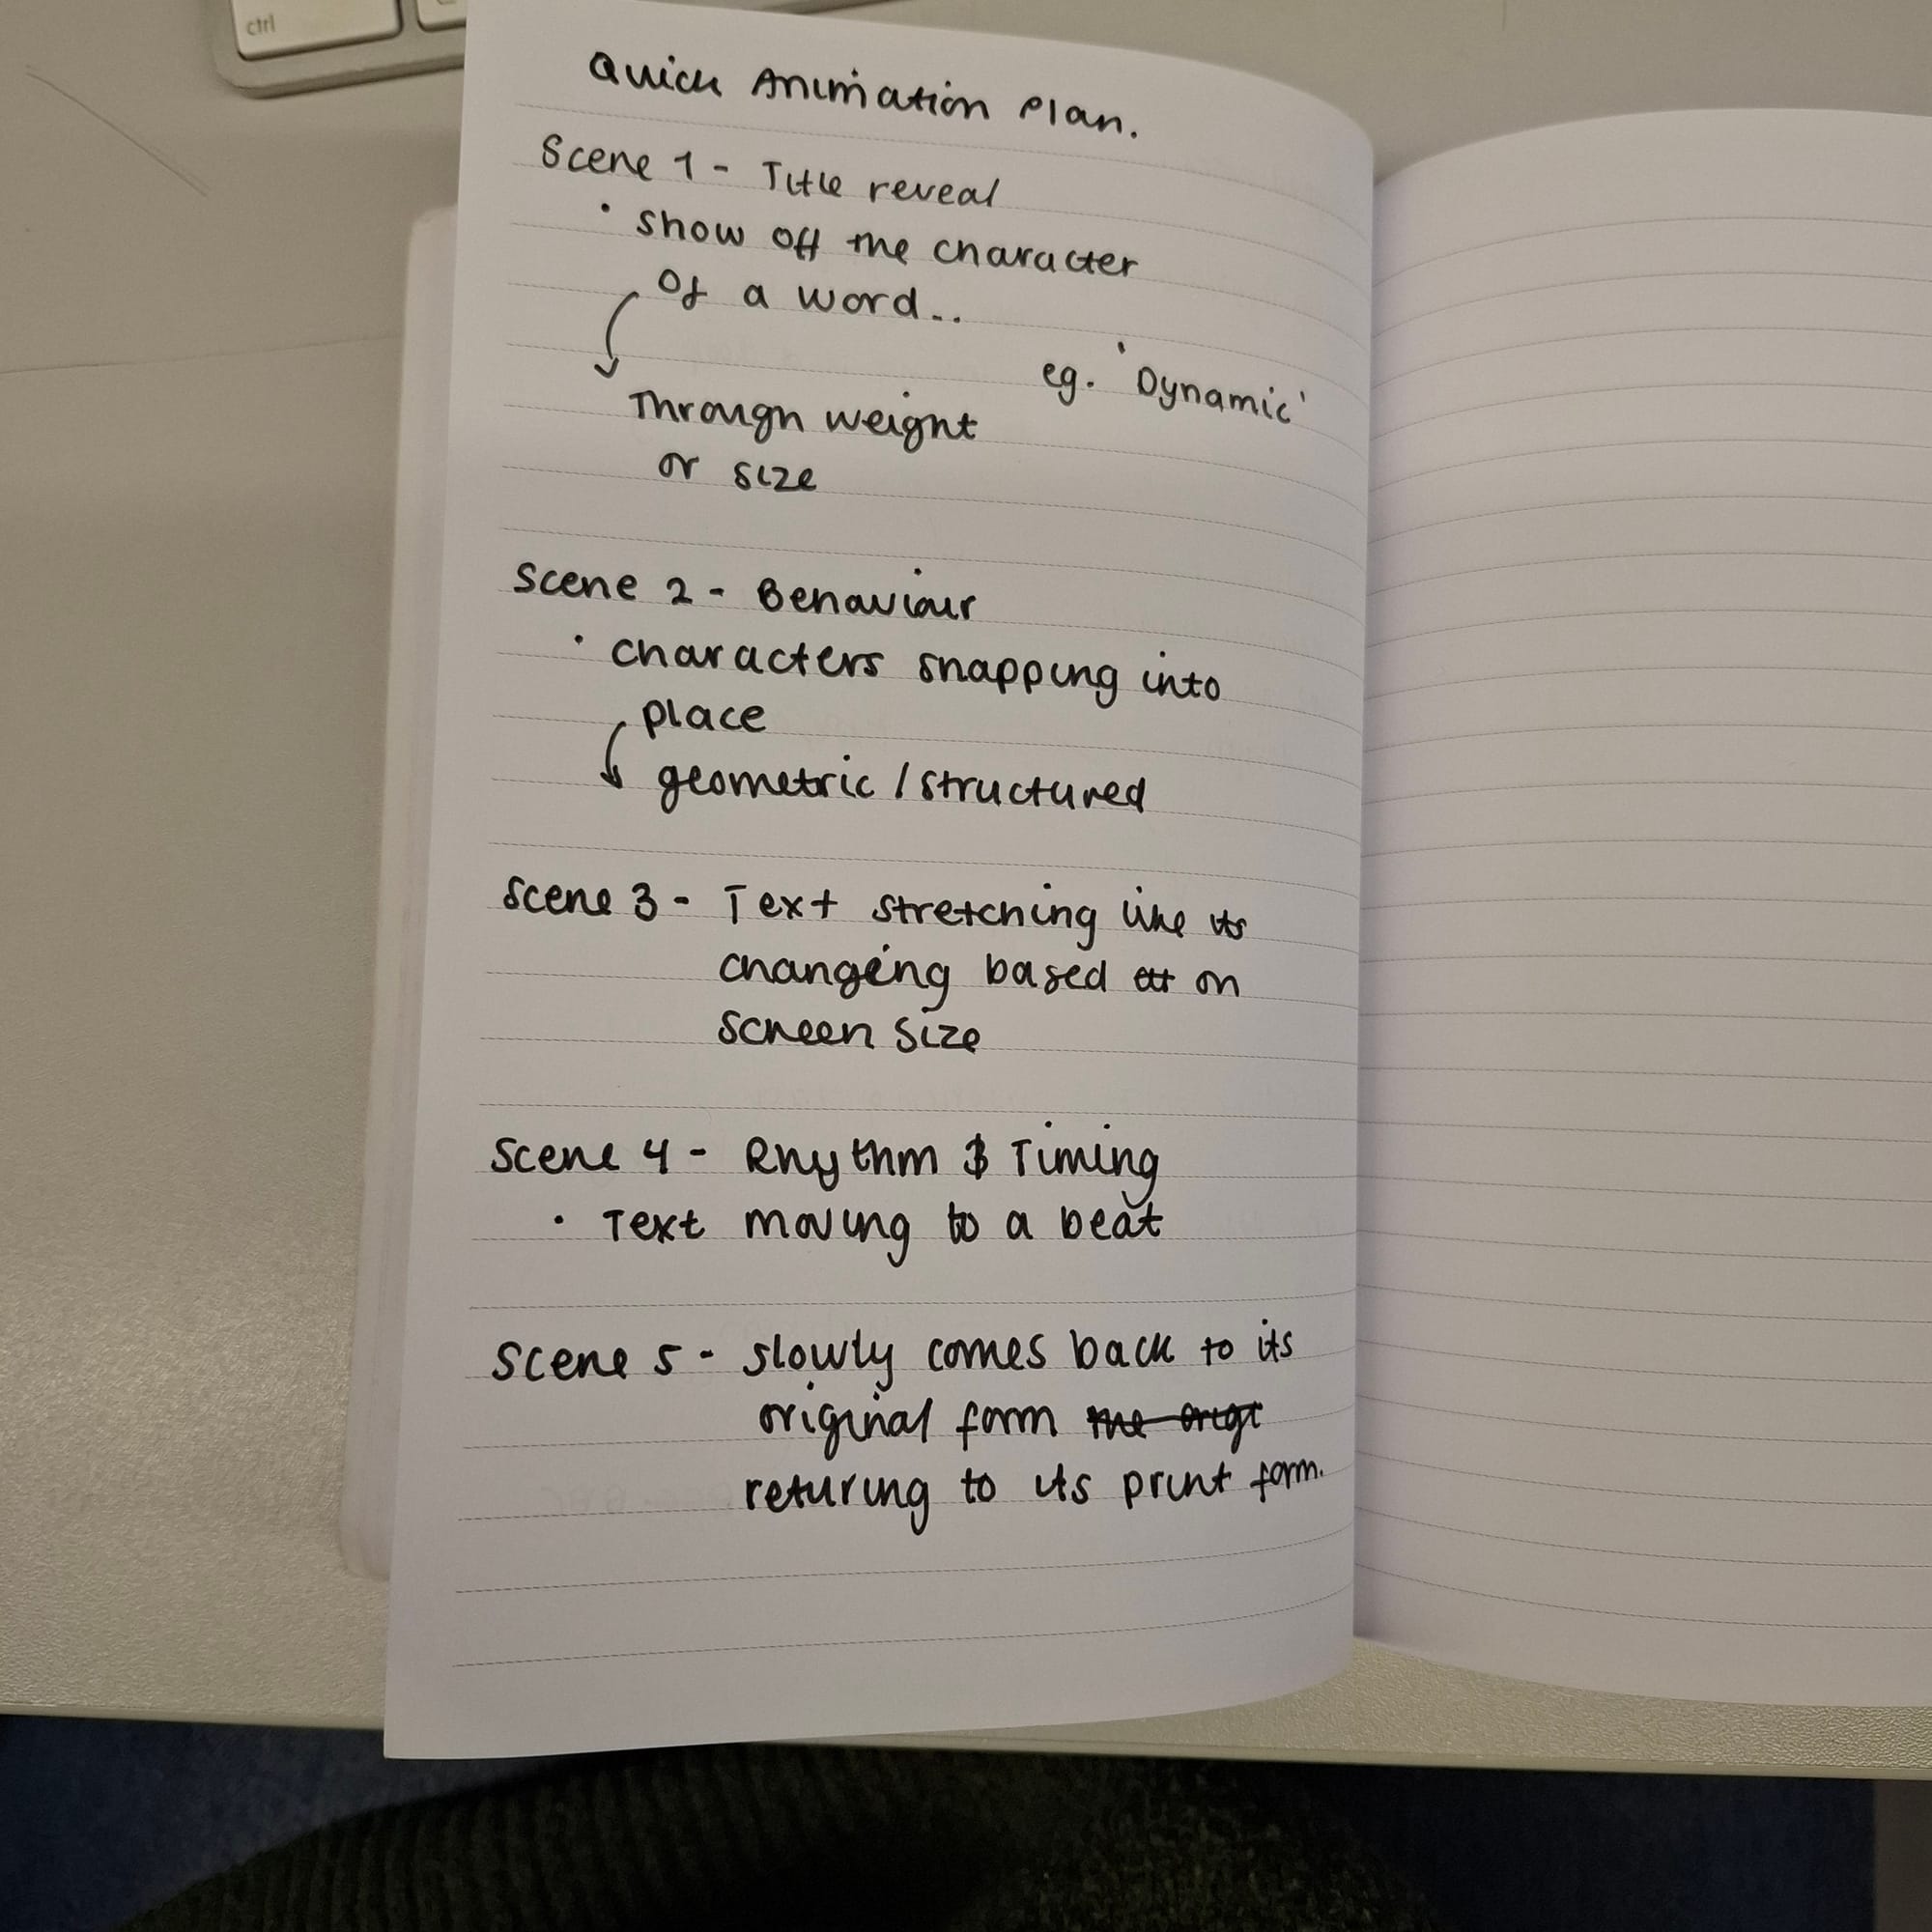 ctrl
Quick Animation Plan.
Scene 1 - Title reveal
• show off the character
of a word..
eg. 'Dynamic'
Through weight
or size
Scene 2 - Behaviour
• characters snapping into
place
geometric / structured
Scene 3 - Text stretching like its
changeing based on
screen size
Scene 4 - Rhythm & Timing
• Text moving to a beat
Scene 5 - slowly comes back to its
original form
returing to its print form.